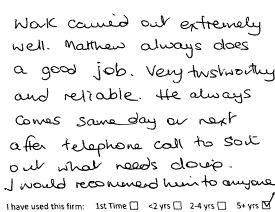 Work carried out extremely
well. Matthew always does
a good job. Very trustworthy
and reliable. He always
comes same day or next
after telephone call to sort
out what needs doing.
I would recommend him to anyone
I have used this firm: 1st Time ☐ <2 yrs ☐ 2-4 yrs ☐ 5+ yrs ☑